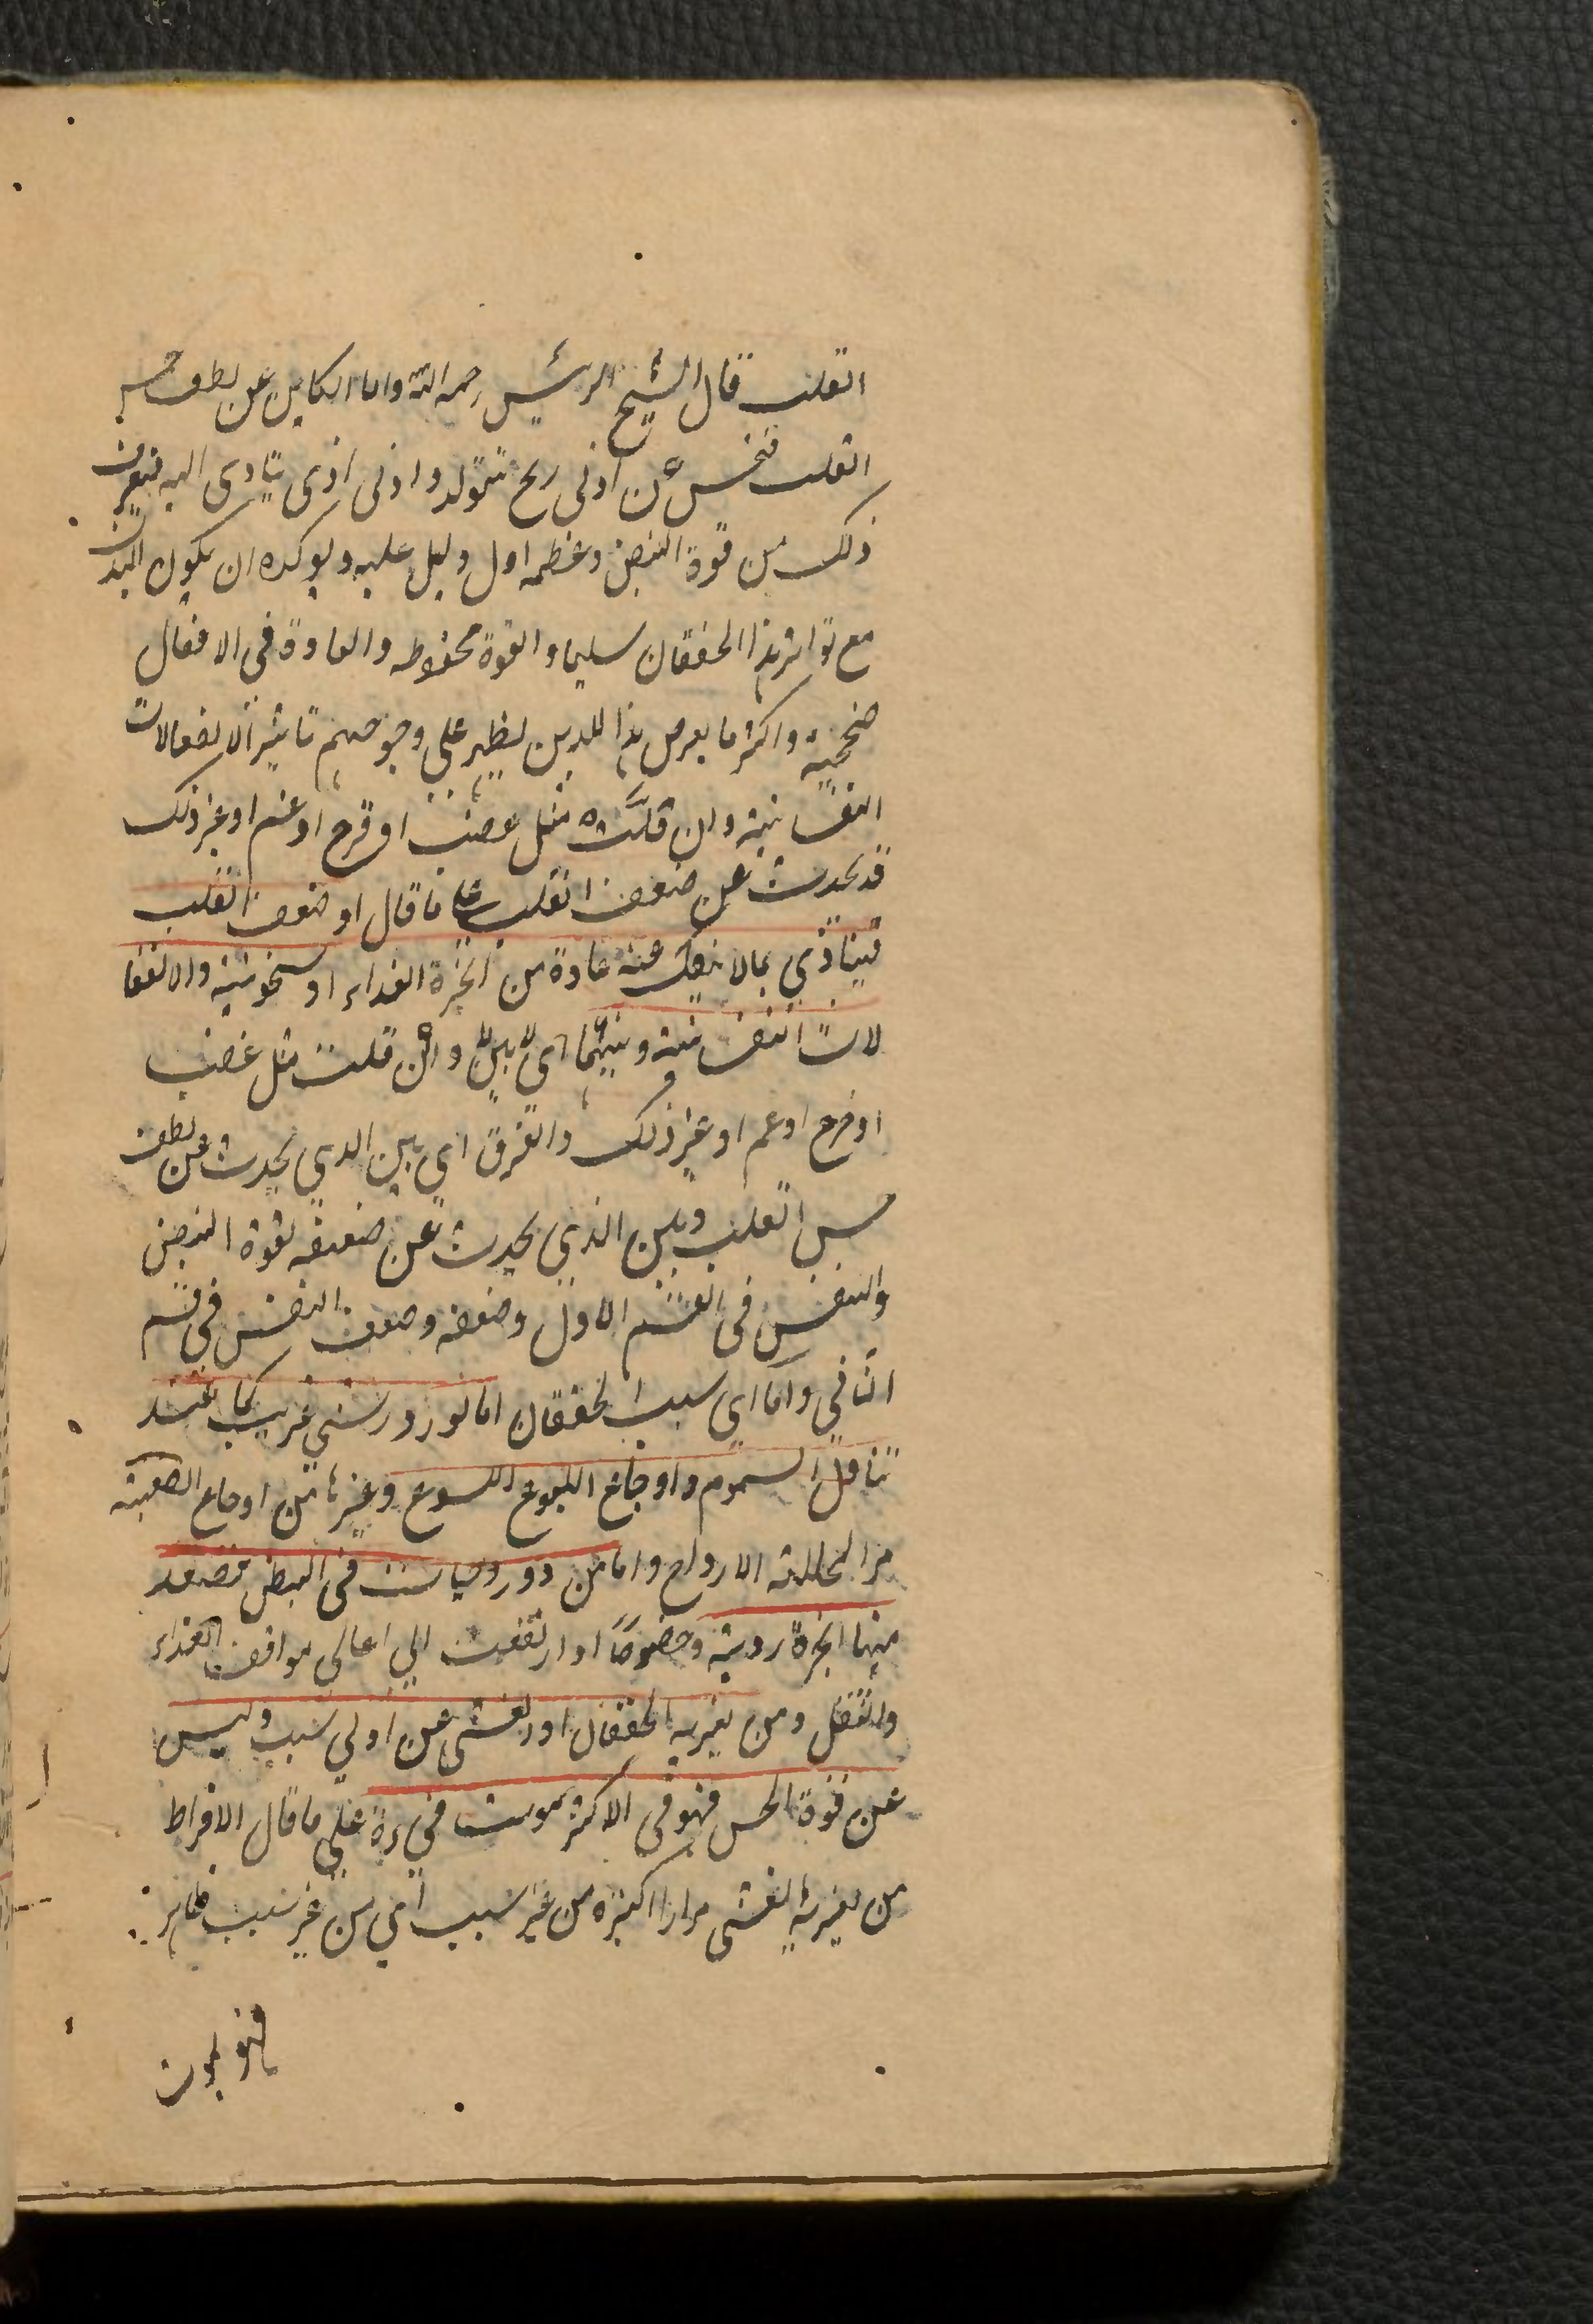 القلب قال الشيخ الرئيس رحمه الله واما الكاين عن لطف حس
القلب فيحس عن ادنى ريح تتولد وادنى اذى يتادى اليه فيعرف
ذلك من قوة النبض وعظمه اول دليل عليه ويوكده ان يكون البدن
مع تواتر هذا الخفقان سليما والقوة محفوظه والعادة في الافعال
صحيحية واكثر ما يعرض هذا للدين يظهر على وجوههم تاثير الانفعالات
النفسانية وان قلت مثل غضب او فرح او غم او غير ذلك
قد يحدث عن ضعف القلب على ما قال او ضعف القلب
فيتاذي بما لا ينفك عنه عادة من ابخرة الغداء او سخونية والانفعا
لات النفسنية وبينهما اي بين وان قلت مثل غضب
او فرح او غم او غير ذلك والفرق اي بين الدي يحدث عن لطف
حس القلب وبين الذي يحدث عن ضعفه لقوة النبض
والنفس في القسم الاول وضعفه وضعف النفس في قسم
الثاني واما اي سبب الخفقان اما لورود شي غريب كما عند
تناول السموم واوجاع اللسوع وغيرها من اوجاع الصعبة
المحللة الارواح واما من دود وحيات في البطن فتصعد
منها ابخرة ردية وخصوصًا اذا ارتفعت الي اعالي مواقف الغداء
والثقل ومن يغريه الخفقان او الغشى عن ادني سبب وليس
عن قوة الحس فهو في الاكثر يموت فجءة على ما قال الافراط
من يغريه الغشى مرارا كثيرة من غير سبب اي من غير سبب ظاهر
فهو يموت